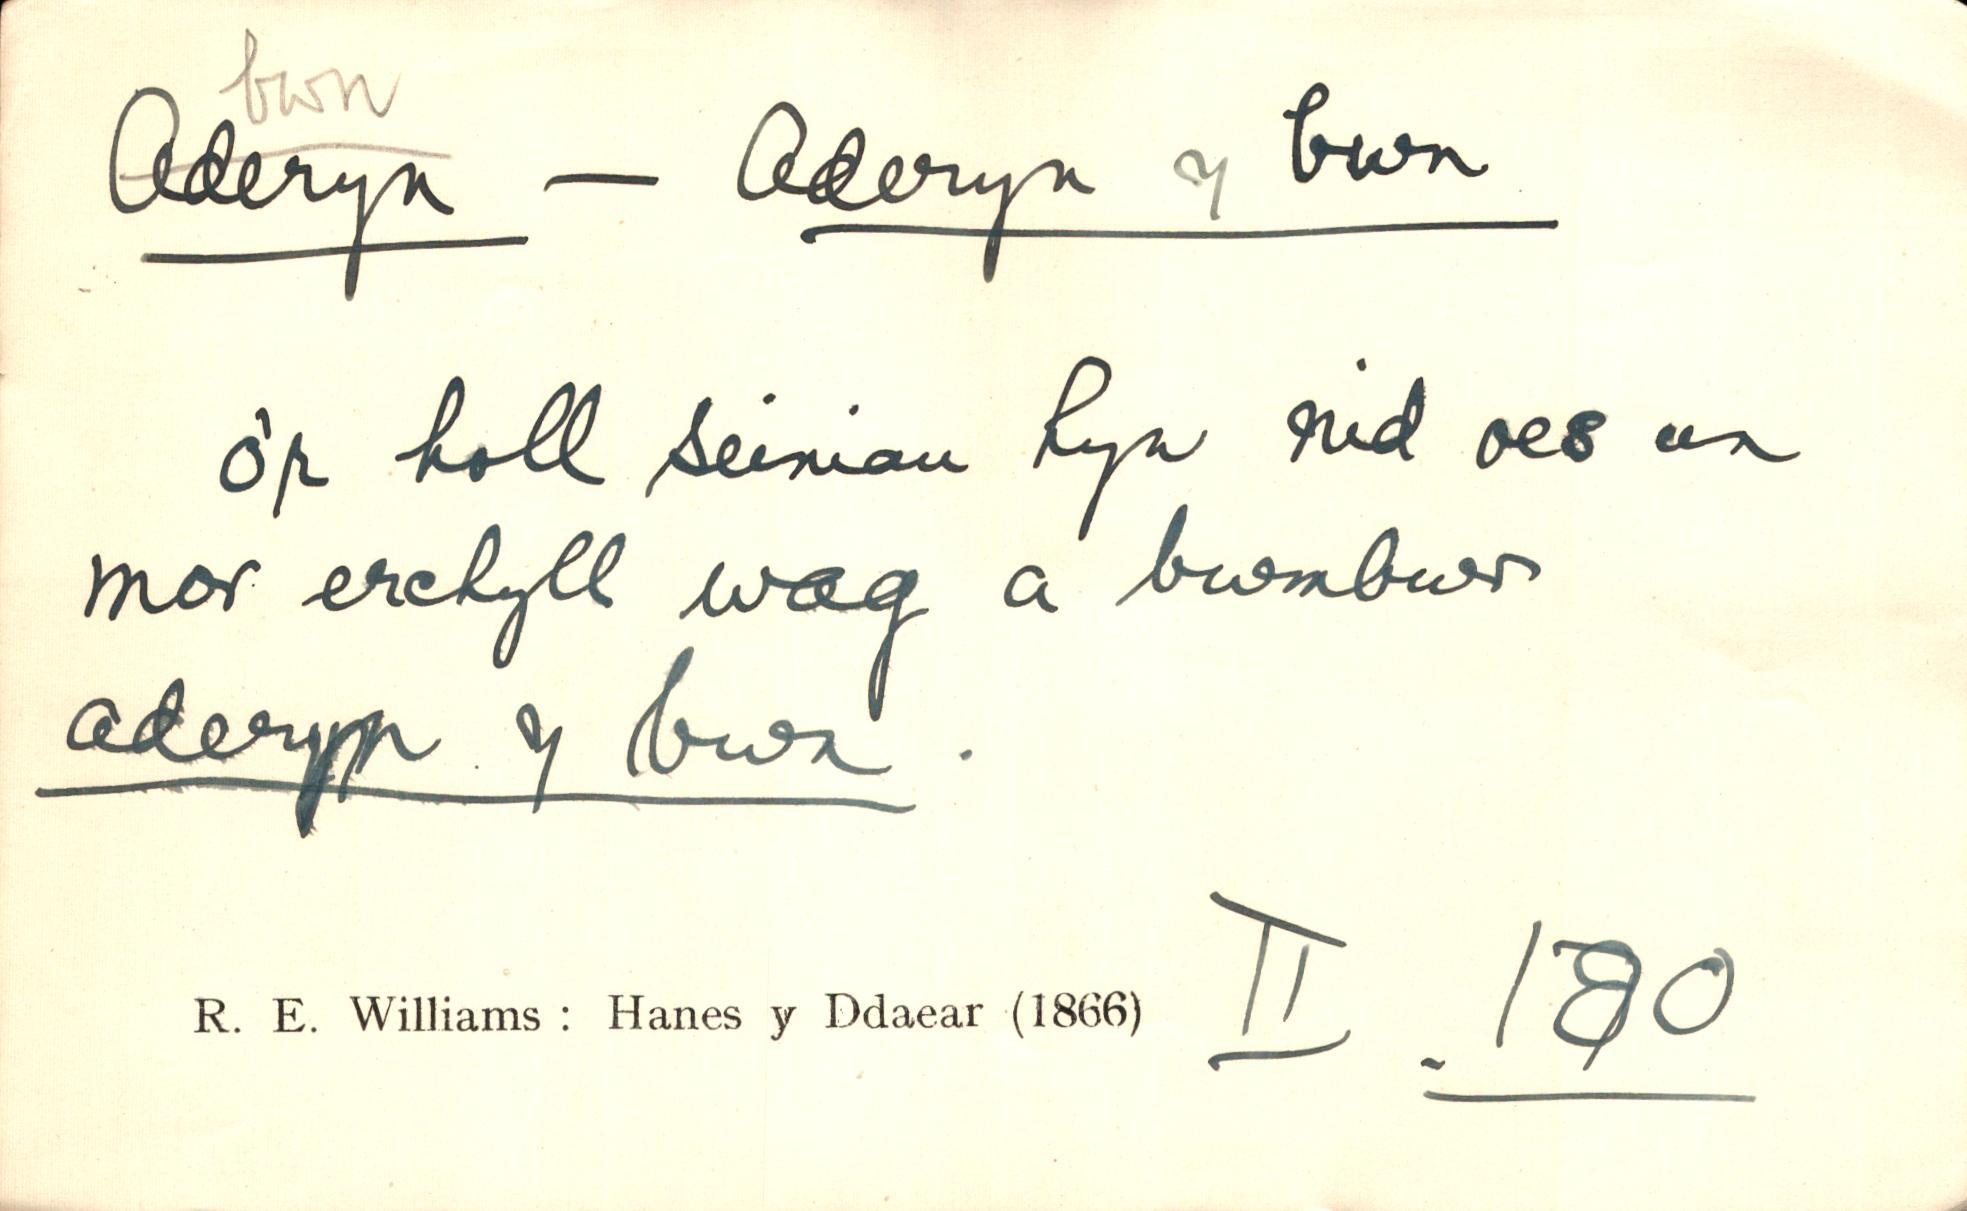 bwn
Aderyn — Aderyn y bwn
O'r holl seiniau hyn nid oes un
mor erchyll wag a bwmbwr
aderyn y bwn.
R. E. Williams: Hanes y Ddaear (1866) II. 180